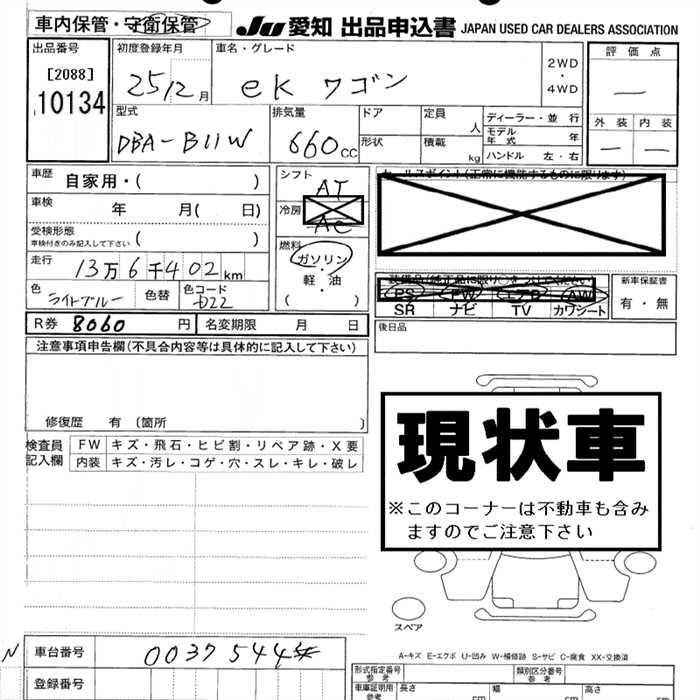 車内保管・守衛保管
JU 愛知 出品申込書 JAPAN USED CAR DEALERS ASSOCIATION
出品番号
[2088]
10134
初度登録年月
25 12月
車名・グレード
eK ワゴン
2WD
・
4WD
評価点
—
外装 内装
— —
型式
DBA-B11W
排気量
660cc
ドア
形状
定員 人
積載 kg
ディーラー・並行
モデル年式 年
ハンドル 左・右
車歴 自家用・( )
車検 年 月( 日)
受検形態
車検付きのみ記入して下さい ( )
走行 13万6千402km
色 ライトブルー 色替 色コード D22
R券 8060円 名変期限 月 日
シフト
AT
冷房
AC
燃料
ガソリン
・
軽・油
( )
セールスポイント(正常に機能するものに限ります)
PS PW エアB AW
SR ナビ TV カワシート
新車保証書
有・無
後日品
注意事項申告欄(不具合内容等は具体的に記入して下さい)
修復歴 有 〔箇所 〕
検査員記入欄
FW キズ・飛石・ヒビ割・リペア跡・X要
内装 キズ・汚レ・コゲ・穴・スレ・キレ・破レ
現状車
※このコーナーは不動車も含み
ますのでご注意下さい
スペア
A-キズ E-エクボ U-凹み W-補修跡 S-サビ C-腐食 XX-交換済
N
車台番号 0037544
登録番号
形式指定番号
参考
類別区分番号
参考
車庫証明用
参考
長さ cm
幅 cm
高さ cm